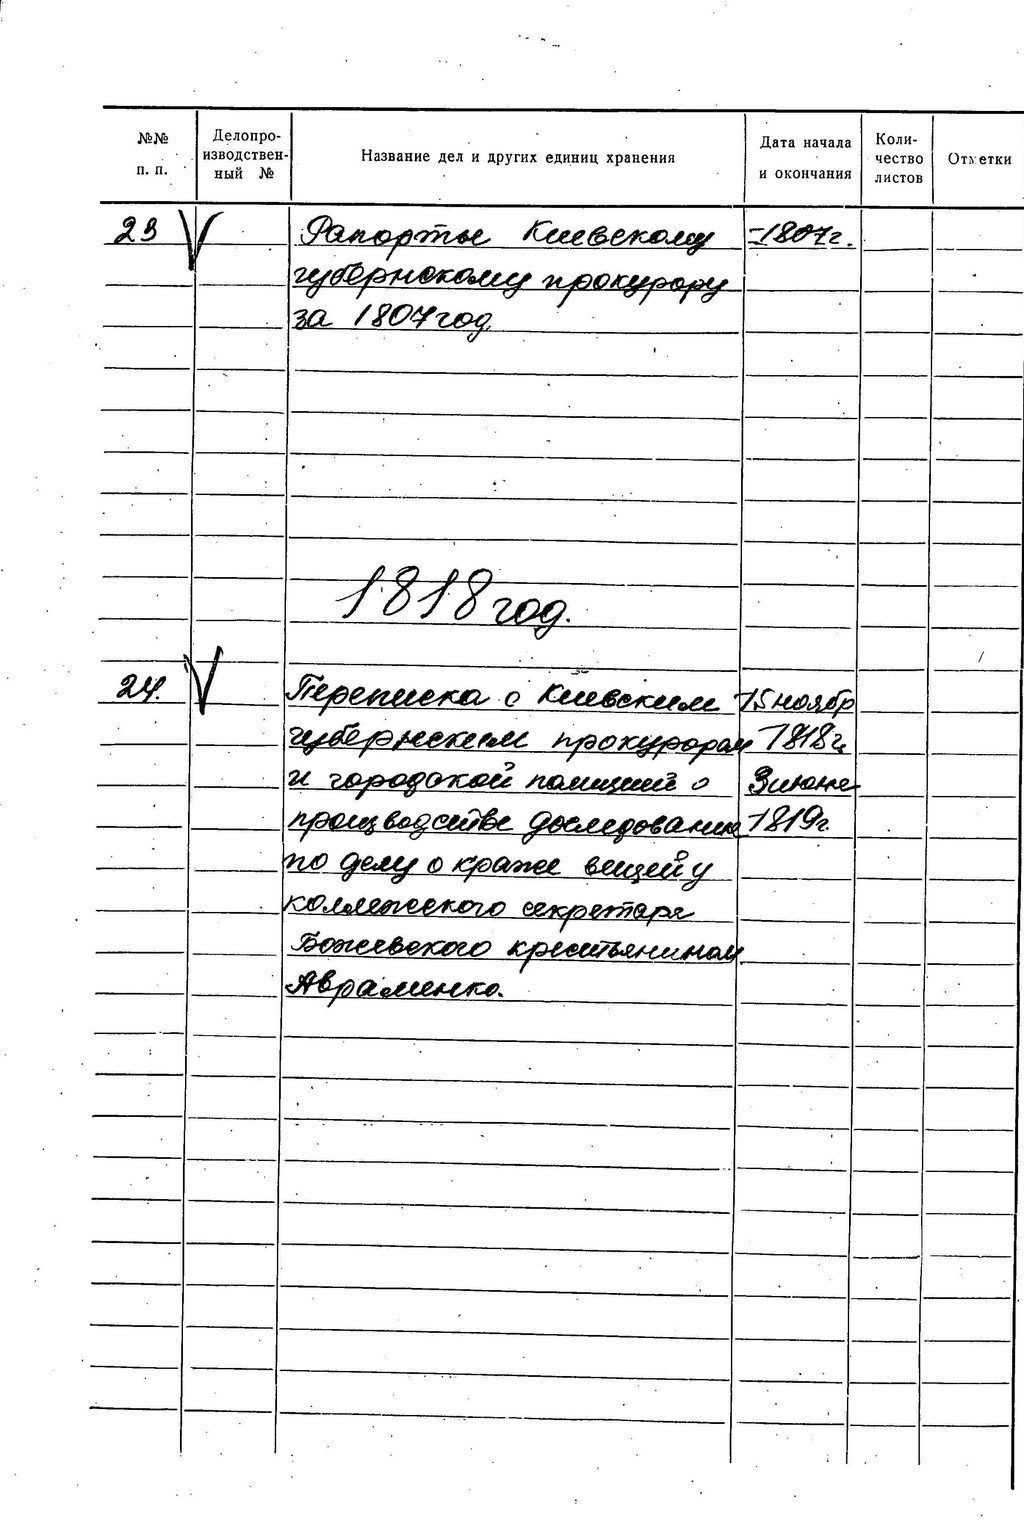 №№ п. п.
Делопроизводственный №
Название дел и других единиц хранения
Дата начала и окончания
Количество листов
Отметки
23 V Рапорты Киевскому -1807г.
губернскому прокурору
за 1807 год.
1818 год.
24. V Переписка с Киевским 15 ноябр
губернским прокурором 1818г.
и городской полицией о 3 июня
производстве доследования 1819г.
по делу о краже вещей у
коллежского секретаря
Божевского крестьянином
Авраменко.